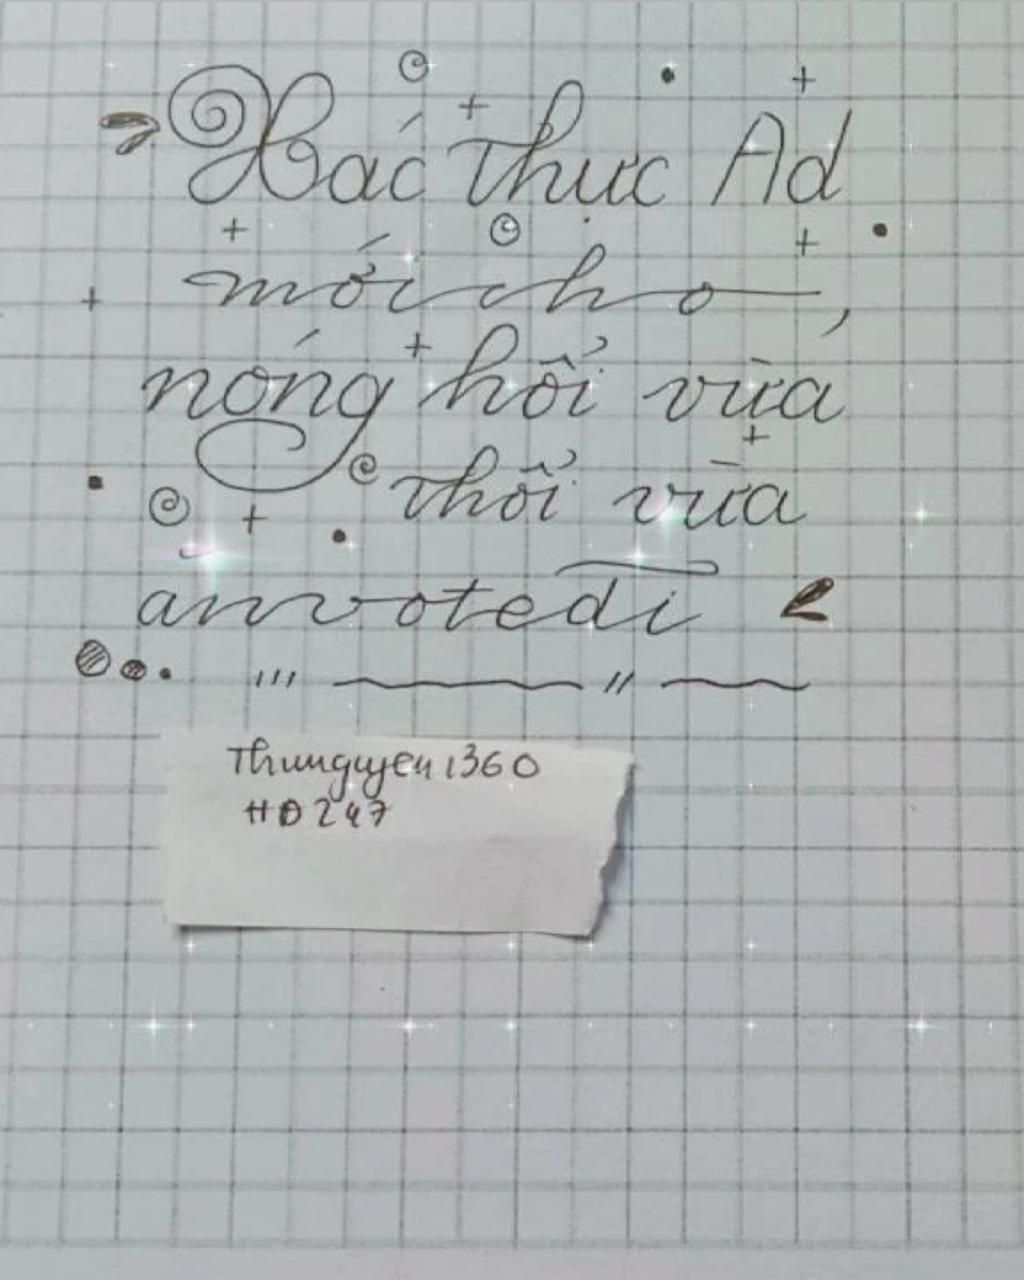 Xác thực Ad
mới cho,
nóng hổi vừa
thổi vừa
ăn votedi
Thunguyen1360
HD247